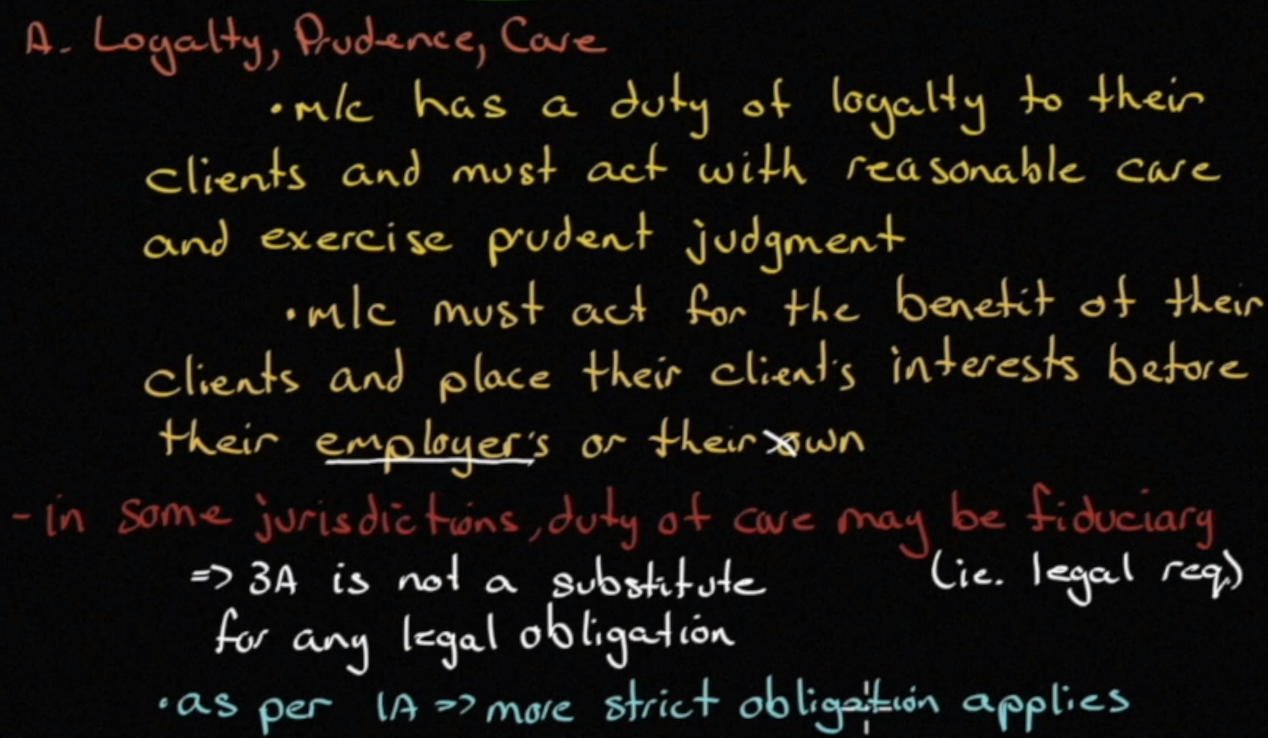 A. Loyalty, Prudence, Care
• m/c has a duty of loyalty to their
clients and must act with reasonable care
and exercise prudent judgment
• m/c must act for the benefit of their
clients and place their client's interests before
their employer's or their own
- in some jurisdictions, duty of care may be fiduciary
=> 3A is not a substitute (ie. legal req.)
for any legal obligation
• as per 1A => more strict obligation applies